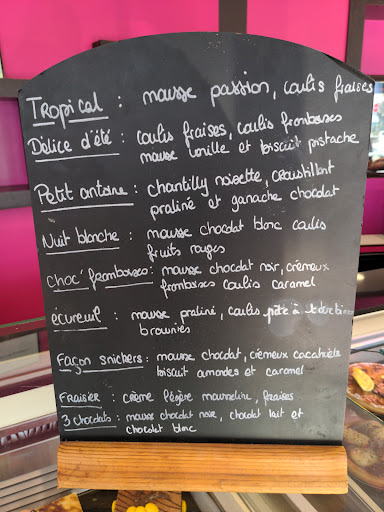 Tropical : mousse passion, coulis fraises
Délice d'été : coulis fraises, coulis framboises
mousse vanille et biscuit pistache
Petit antoine : chantilly noisette, croustillant
praliné et ganache chocolat
Nuit blanche : mousse chocolat blanc coulis
fruits rouges
Choc' framboises : mousse chocolat noir, crémeux
framboises coulis caramel
écureuil : mousse praliné, coulis pâte à
brownies
Façon snickers : mousse chocolat, crémeux cacahuète
biscuit amandes et caramel
Fraisier : crème légère mousseline, fraises
3 chocolats : mousse chocolat noir, chocolat lait et
chocolat blanc